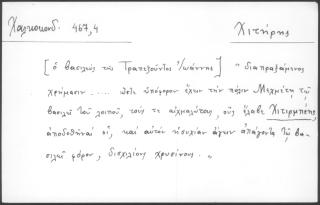 Χαλκοκονδ. 467,4 Χιτήρης
[ὁ βασιλεὺς τῶν Τραπεζοῦντος Ἰωάννης] " διαπραξάμενος
χρήμασιν .... ὥστε ὑπόφορον ἔχειν τὴν πόλιν Μεχμέτῃ τῷ
βασιλεῖ τοῦ λοιποῦ, τούς τε αἰχμαλώτας, οὓς ἔλαβε Χιτιρμπέης,
ἀποδοθῆναί οἱ, καὶ αὐτὸν ἡσυχίαν ἄγειν ἀπάγοντα τῷ βα-
σιλεῖ φόρον, δισχιλίους χρυσίνους. "